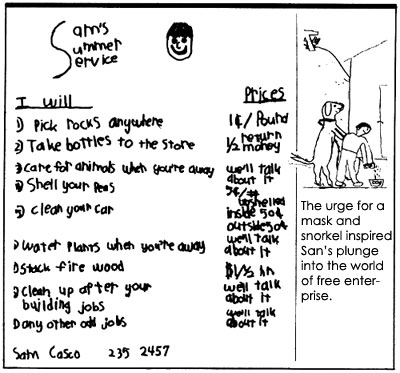 Sam's
Summer
Service
I will Prices
1) Pick rocks anywhere 1¢/Pound
2) Take bottles to the store ½ return money
3) Care for animals when you're away we'll talk about it
) Shell your peas 5¢/# unshelled
5) clean your car inside 50¢ outside 50¢
) water plants when you're away we'll talk about it
) Stack fire wood $1/½ hr
) Clean up after your we'll talk
building jobs about it
) any other odd jobs we'll talk about it
Sam Casco 235 2457
The urge for a
mask and
snorkel inspired
San's plunge
into the world
of free enter-
prise.